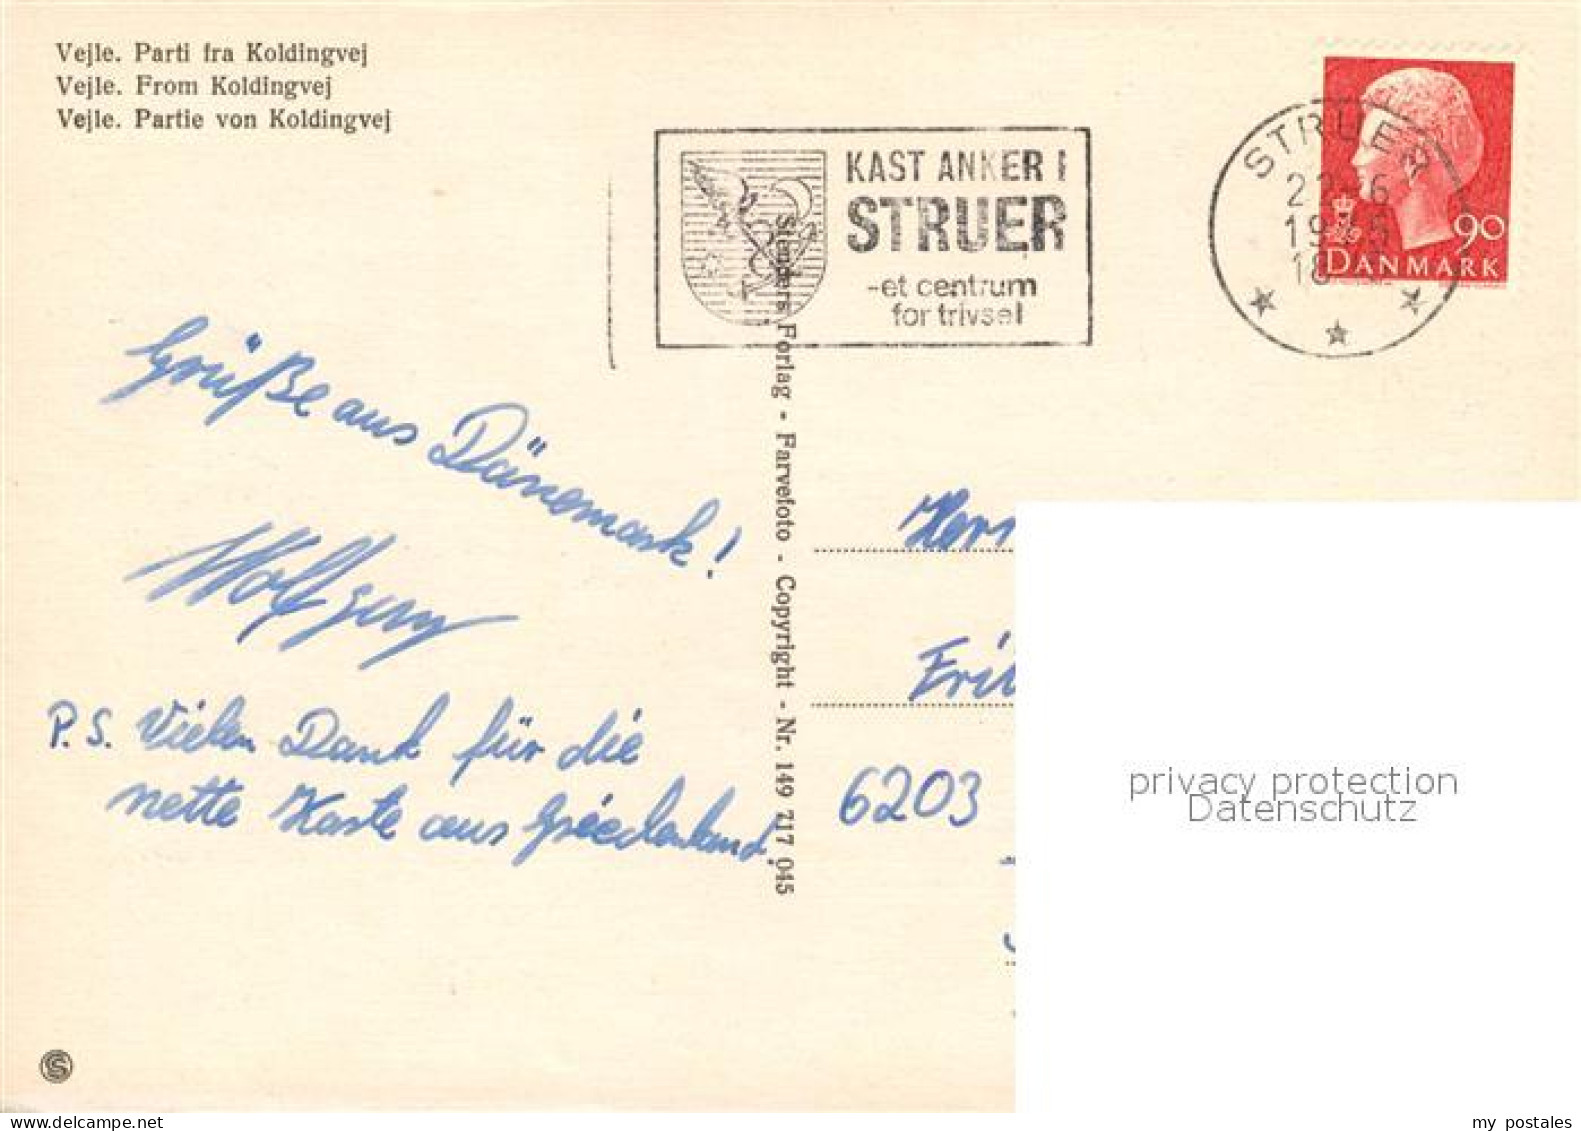 Vejle. Parti fra Koldingvej
Vejle. From Koldingvej
Vejle. Partie von Koldingvej
KAST ANKER I
STRUER
-et centrum
for trivsel
STRUER
90
DANMARK
Grüße aus Dänemark!
Wolfgang
P.S. Vielen Dank für die
nette Karte aus Griechenland.
Stenders Forlag - Farvefoto - Copyright - Nr. 149 717 045
Herr
6203
privacy protection
Datenschutz
S
my postales